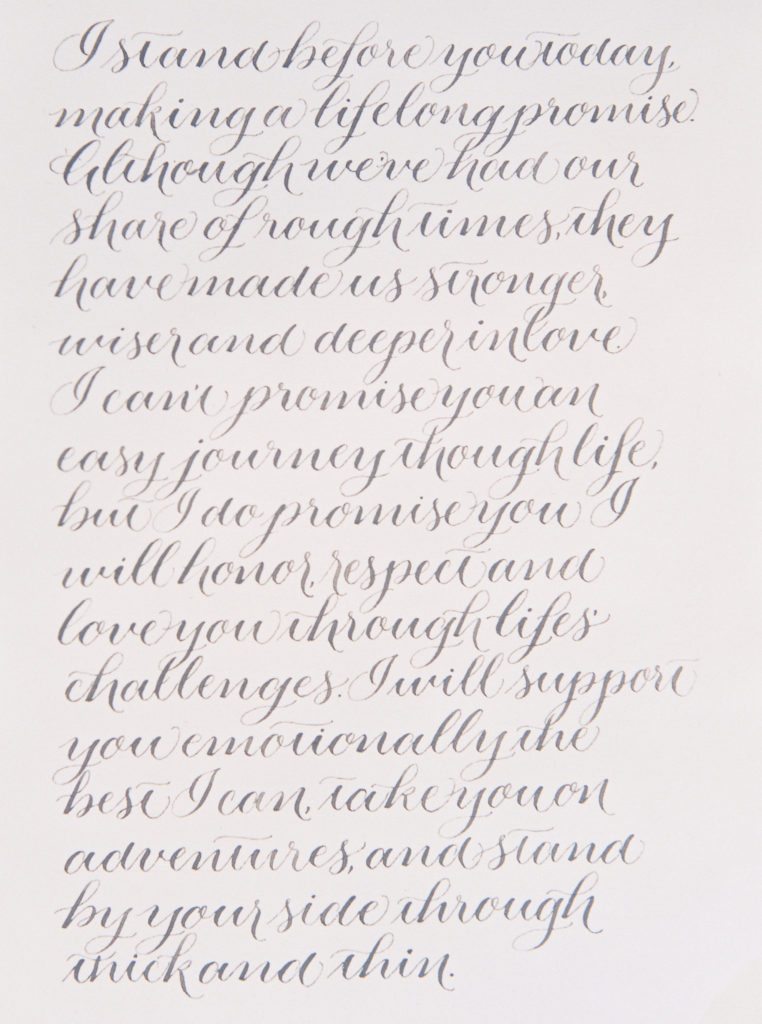 I stand before you today,
making a lifelong promise.
Although we've had our
share of rough times, they
have made us stronger,
wiser and deeper in love.
I can't promise you an
easy journey though life,
but I do promise you I
will honor, respect and
love you through lifes'
challenges. I will support
you emotionally the
best I can, take you on
adventures, and stand
by your side through
thick and thin.